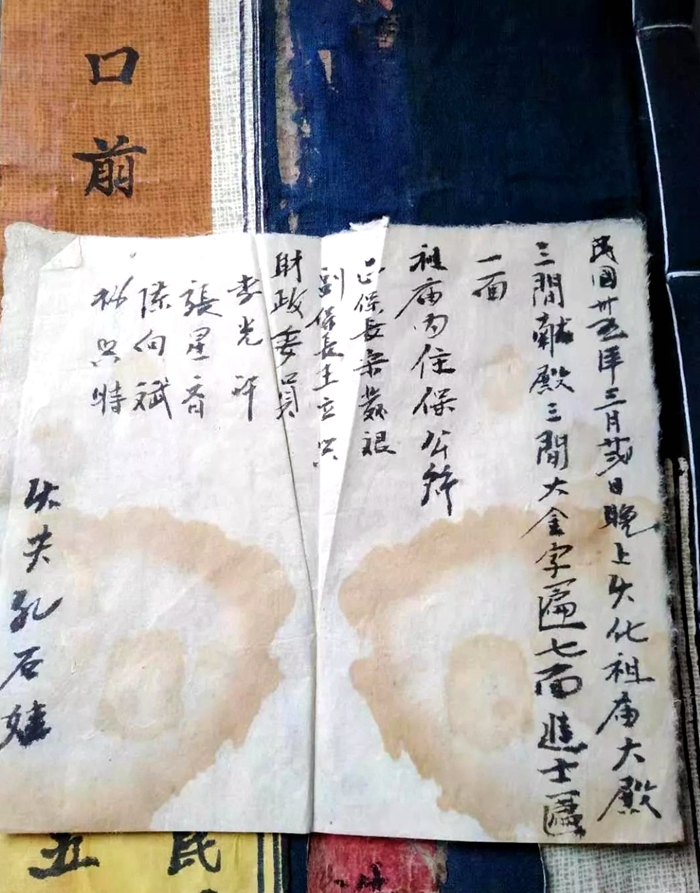 民国卅五年三月廿弍日晚上失化祖庙大殿
三間献殿三間大金字匾七面進士匾
一面
祖庙内住保公所
正保長梁發
副保長王立
財政委員
李光祥
張星斎
陈向斌
特
失失孔石娃
口前
五 民